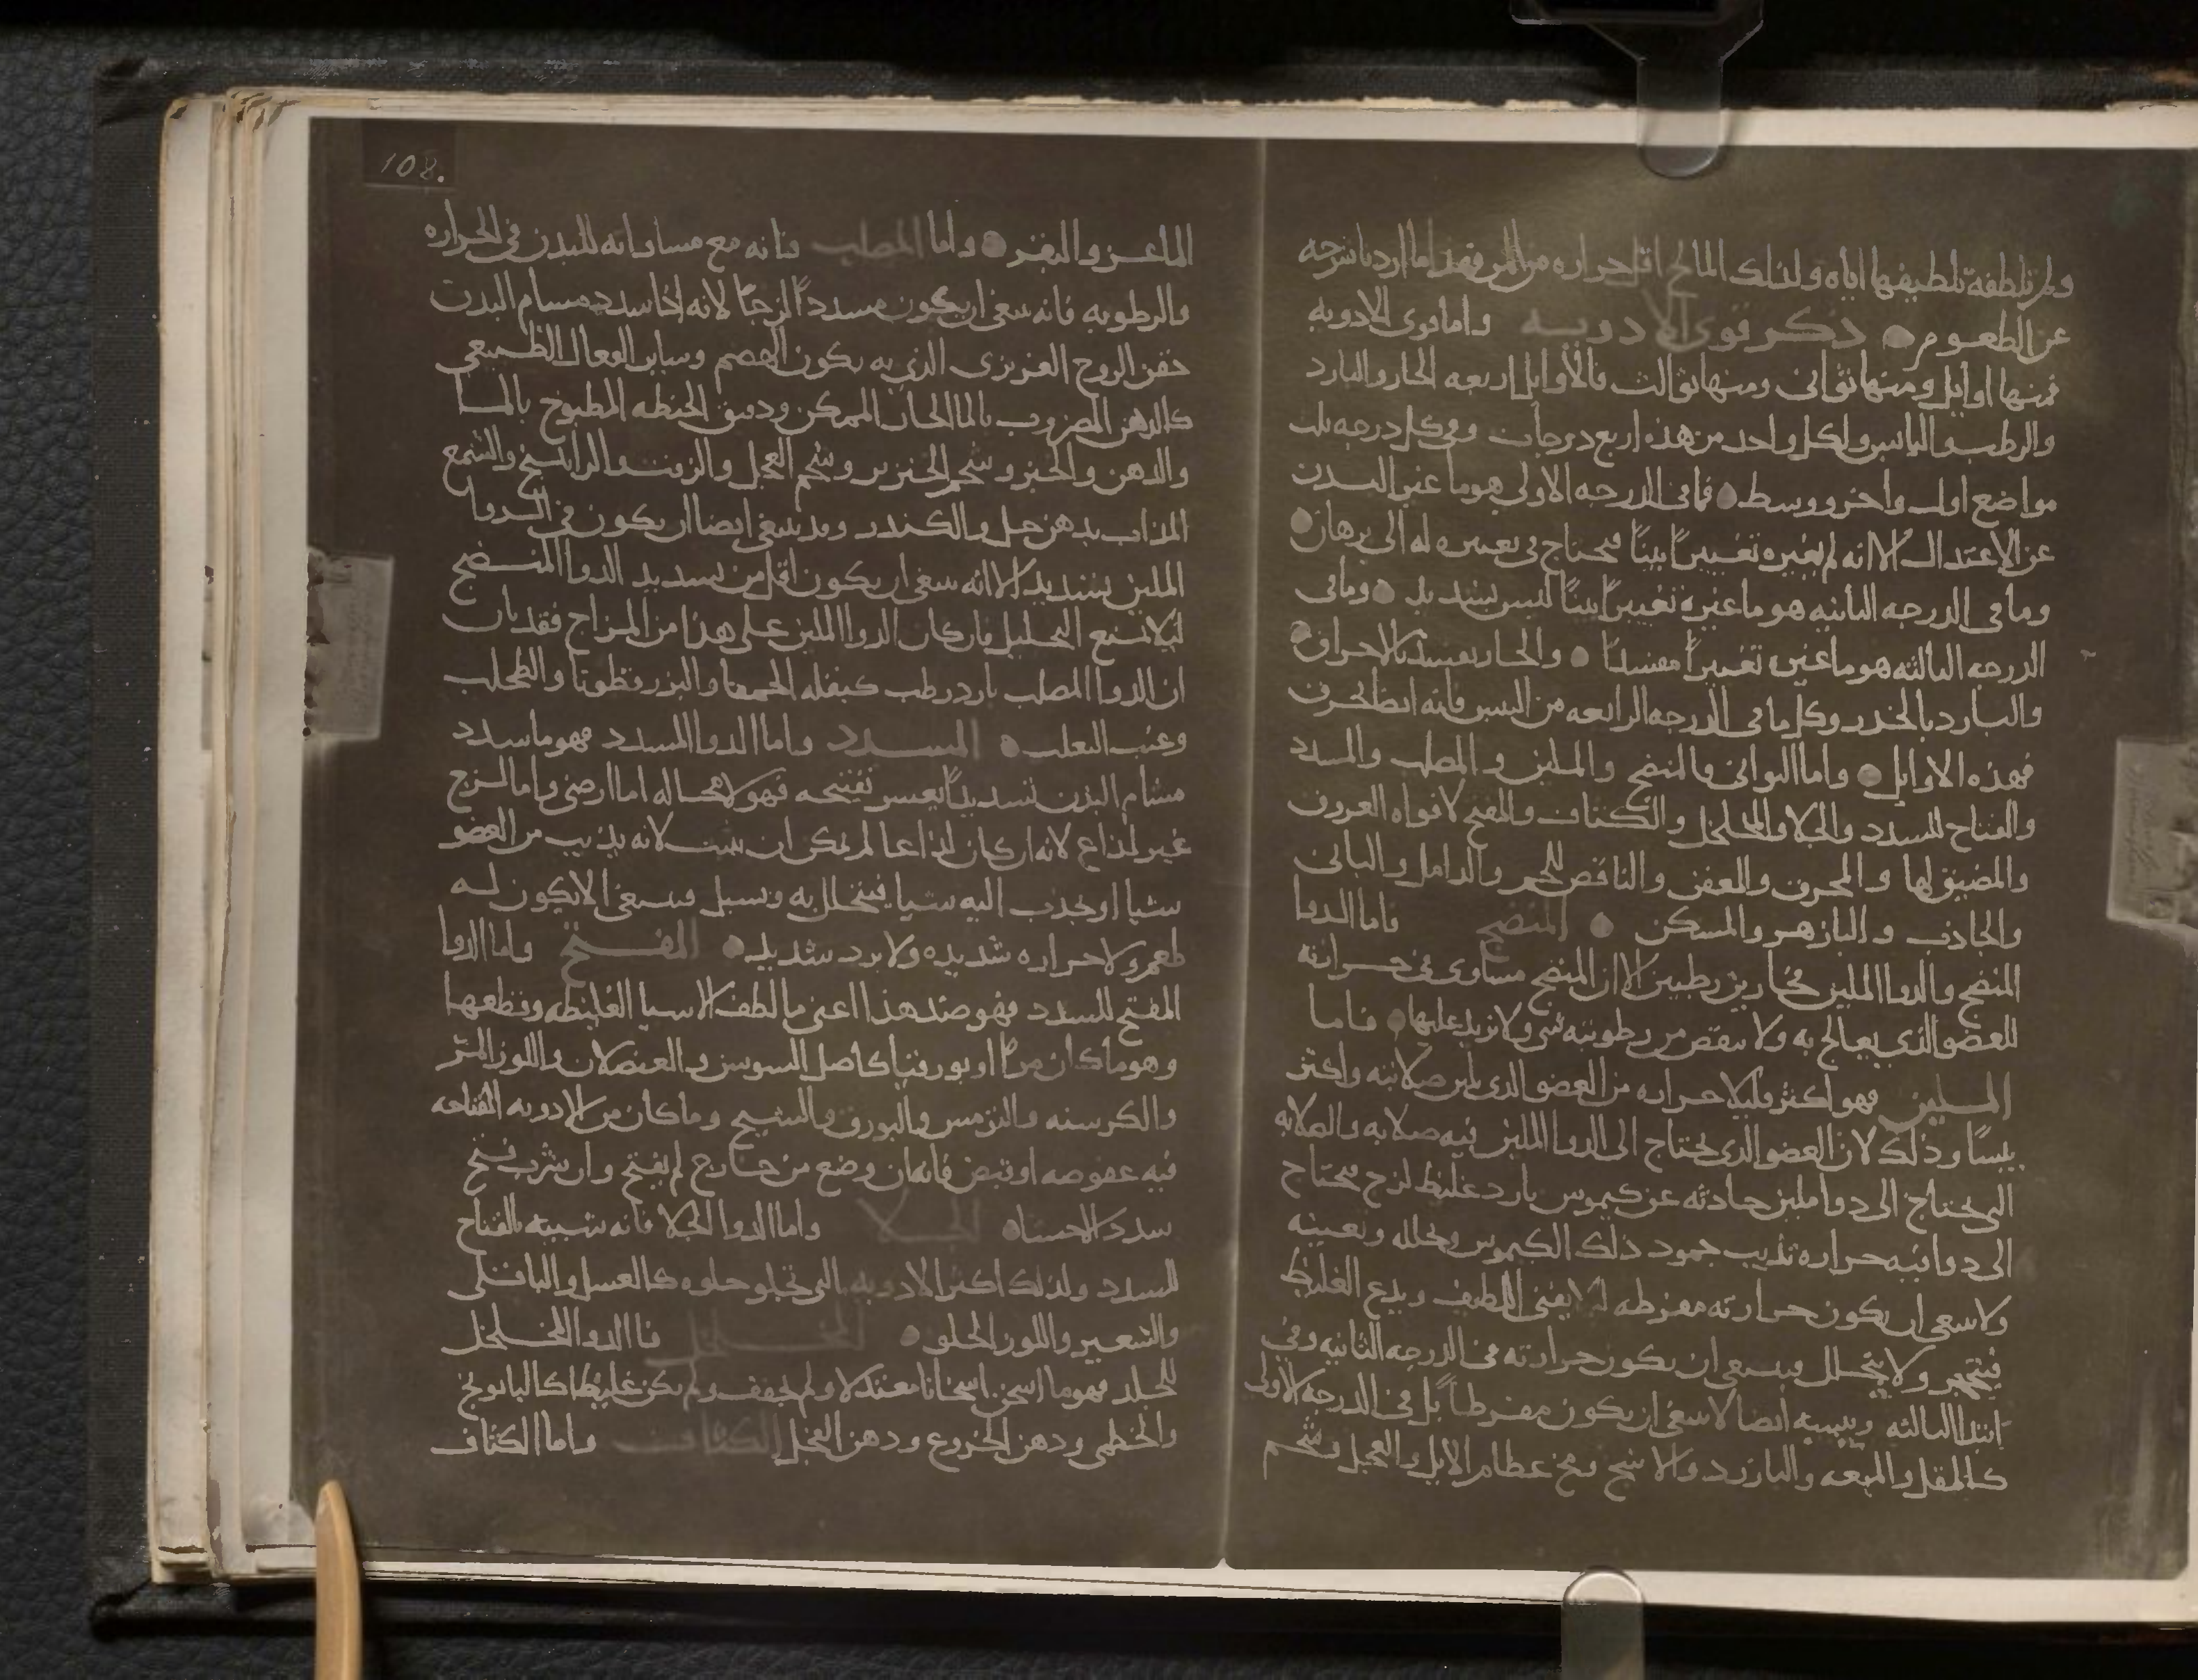 ولم تلطفه تلطيفها اياه ولذلك المالح اقل حراره من المر فهذا ما اردنا شرحه
عن الطعوم ذكر قوى الادويه واما قوى الادويه
فمنها اوايل ومنها ثوانى ومنها ثوالث فالأوايل اربعه الحار والبارد
والرطب واليابس ولكل واحد من هذه اربع درجات وفى كل درجه ثلث
مواضع اول واخر ووسط فما فى الدرجه الاولى هو ما غير البدن
عن الاعتدال الا انه لم يغيره تغييراً بيناً فيحتاج فى تغييره له الى برهان
وما فى الدرجه الثانيه هو ما غيره تغييراً بيناً ليس بشديد وما فى
الدرجه الثالثه هو ما غيره تغييراً مفسداً والحار يفسد بالاحراق
والبارد بالخدر وكل ما فى الدرجه الرابعه من اليبس فانه ايضا يحرق
فهذه الاوايل واما الثوانى فالمنضج والملين والمصلب والمسدد
والفتاح للسدد والجلا والمخلخل والكثاف والمفتح لافواه العروق
والمضيق لها والمحرق والمعفن والناقص للحم والدامل والبانى
والجاذب والبازهر والمسكن المنضج فاما الدوا
المنضج والدوا الملين فحارين رطبين الا ان المنضج مساوى فى حرارته
للعضو الذى يعالج به ولا ينقص من رطوبته شى ولا يزيد عليها فاما
الملين فهو اكثر قليلا حراره من العضو الذى يلين صلابته واكثر
يبسًا وذلك لان العضو الذى يحتاج الى الدوا الملين فيه صلابه والصلابه
التى يحتاج الى دوا ملين حادثه عن كيموس بارد غليظ لزج فيحتاج
الى دوا فيه حراره تذيب جمود ذلك الكيموس وتحلله وتفنيه
ولا ينبغى ان يكون حرارته مفرطه ليلا يفنى اللطيف ويدع الغليظ
فيتحجر ولا يتحلل وينبغى ان يكون حرارته فى الدرجه الثانيه وفى
ابتدا الثالثه ويبسه ايضا لا ينبغى ان يكون مفرطاً بل فى الدرجه الاولى
كالمقل والميعه والبارزد والاشج ومخ عظام الايل والعجل وشحم
108.
الماعز والبقر واما المصلب فانه مع مساواته للبدن فى الحراره
والرطوبه فانه ينبغى ان يكون مسدداً لزجاً لانه اذا سدد مسام البدن
حقن الروح الغريزى الذى به يكون الهضم وساير الفعال الطبيعى
كالدهن المضروب بالما الحار الممكن ودقيق الحنطه المطبوخ بالما
والدهن والخبز وشحم الخنزير وشحم العجل والزفت والراتينج والشمع
المذاب بدهن حل والكندر وقد ينبغى ايضا ان يكون فى الدوا
الملين تسديد الا انه ينبغى ان يكون اقل من تسديد الدوا المنضج
ليلا يمنع التحليل فان كان الدوا الملين على هذا من المزاج فقد بان
ان الدوا المصلب بارد رطب كبقله الحمقا والبزرقطونا والطحلب
وعنب الثعلب المسدد واما الدوا المسدد فهو ما سدد
مسام البدن تسديداً يعسر تفتيحه فهو لا محاله اما ارضى واما لزج
غير لذاع لانه ان كان لذاعا لم يمكن ان يثبت لانه يذيب من العضو
شيا او يجذب اليه شيا فيتحلل به ويسيل وينبغى الا يكون له
طعم ولا حراره شديده ولا برد شديد المفتح واما الدوا
المفتح للسدد فهو ضد هذا اعنى ما لطف الاشيا الغليظه وقطعها
وهو ما كان مراً او بورقياً كاصل السوسن والعنصلان واللوز المر
والكرسنه والترمس والبورق والشيح وما كان من الادويه الفتاحه
فيه عفوصه او قبض فانه ان وضع من خارج لم يفتح وان شرب فتح
سدد الاحشا الجلا واما الدوا الجلا فانه شبيه بالفتاح
للسدد ولذلك اكثر الادويه التى تجلو حلوه كالعسل والباقلى
والشعير واللوز الحلو المخلخل فاما الدوا المخلخل
للجلد فهو ما اسخن اسخانا معتدلا ولم يجفف ولم يكن غليظا كالبابونج
والخطمى ودهن الخروع ودهن الفجل الكثاف واما الكثاف